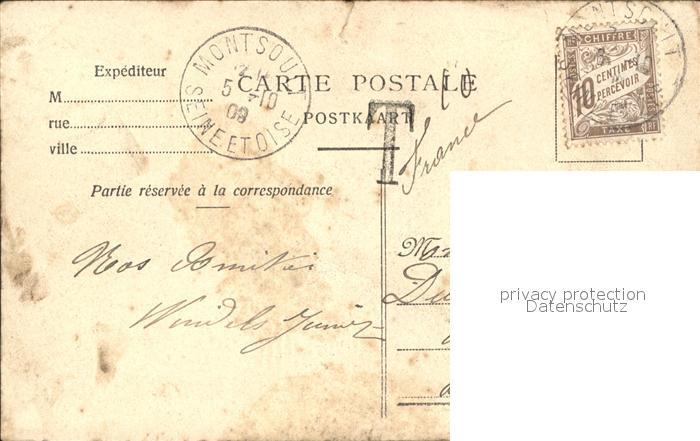 Expéditeur
M
rue
ville
MONTSOULT
5 -10
09
SEINE ET OISE
CARTE POSTALE
POSTKAART
T
10
France
CHIFFRE
10 CENTIMES
A
PERCEVOIR
TAXE
RF
Partie réservée à la correspondance
Nos Amitiés
privacy protection
Datenschutz